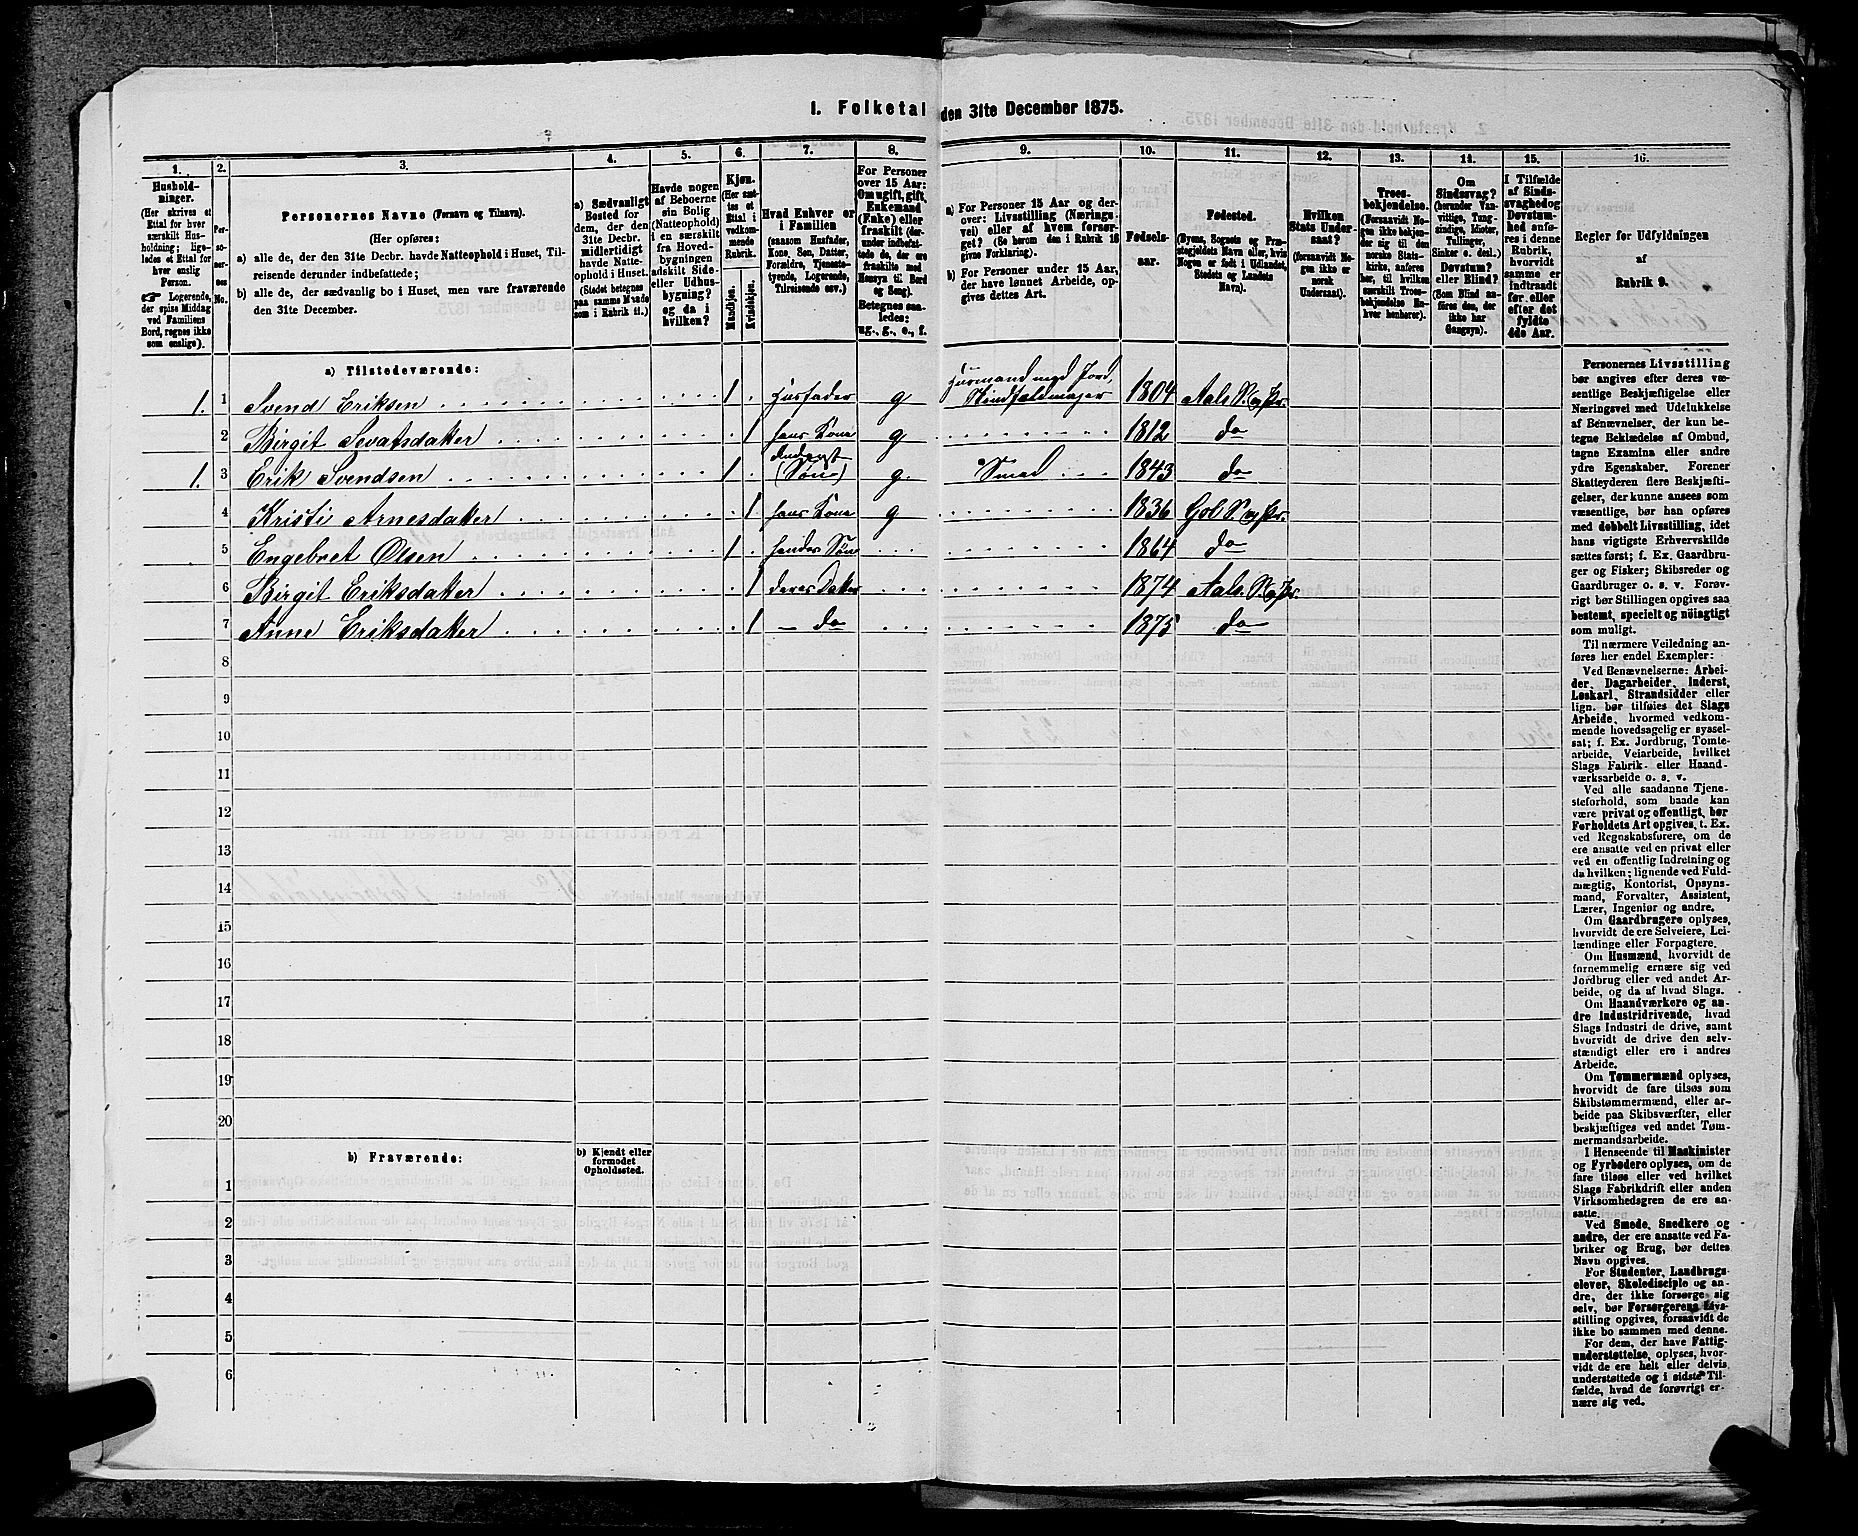 1. Folketal den 31te December 1875.
1. 2. 3. 4. 5. 6. 7. 8. 9. 10. 11. 12. 13. 14. 15. 16.
Hushold-
ninger.
(Her skrives et
Ettal for hver
særskilt Hus-
holdning; lige-
ledes et Ettal for
hver enslig
Person.
☞ Logerende,
der spise Middag
ved Familiens
Bord, regnes ikke
som enslige).
Per-
so-
ner-
nes
No.
Personernes Navne (Fornavn og Tilnavn).
(Her opføres:
a) alle de, der den 31te Decbr. havde Natteophold i Huset, Til-
reisende derunder indbefattede;
b) alle de, der sædvanlig bo i Huset, men vare fraværende
den 31te December.
a) Sædvanligt
Bosted for
dem, der den
31te Decbr.
midlertidigt
havde Natte-
ophold i Huset.
(Stedet betegnes
paa samme Maade
som i Rubrik 11.)
Havde nogen
af Beboerne
sin Bolig
(Natteophold)
i en særskilt
fra Hoved-
bygningen
adskilt Side-
eller Udhus-
bygning?
og da i
hvilken?
Kjøn.
(Her sæt-
tes et
Ettal i
vedkom-
mende
Rubrik.
Mandkjøn.
Kvindekjøn.
Hvad Enhver er
i Familien
(saasom Husfader,
Kone, Søn, Datter,
Forældre, Tjeneste-
tyende, Logerende,
Tilreisende osv.)
For Personer
over 15 Aar:
Om ugift, gift,
Enkemand
(Enke) eller
fraskilt (der-
under indbefat-
tede de, der ere
fraskilte med
Hensyn til Bord
og Seng).
Betegnes saa-
ledes:
ug., g., e., f.
a) For Personer 15 Aar og der-
over: Livsstilling (Nærings-
vei) eller af hvem forsør-
get? (Se herom den i Rubrik 16
givne Forklaring).
b) For Personer under 15 Aar,
der have lønnet Arbeide, op-
gives dettes Art.
Fødsels-
aar.
Fødested.
(Byens, Sognets og Præ-
stegjeldets Navn eller, hvis
Nogen er født i Udlandet,
Stedets og Landets
Navn).
Hvilken
Stats Under-
saat?
(forsaavidt No-
gen ikke er
norsk
Undersaat).
Troes-
bekjendelse.
(Forsaavidt No-
gen ikke bekjen-
der sig til den
norske Stats-
kirke, anføres
her, til hvilken
særskilt Troes-
bekjendelse En-
hver henhører).
Om
Sindssvag?
(herunder Van-
vittige, Tung-
sindige, Idioter,
Tullinger,
Sinker o. desl.)
Døvstum?
eller Blind?
(Som Blind an-
føres den, der
ikke har
Gangsyn).
I Tilfælde
af Sinds-
svaghed og
Døvstum-
hed anfø-
res i denne
Rubrik,
hvorvidt
samme er
indtraadt
før eller
efter det
fyldte
4de Aar.
Regler for Udfyldningen
af
Rubrik 9.
a) Tilstedeværende:
1. 1 Svend Eriksen 1 Husfader g Husmand med Jord, Skindfeldmager 1804 Aals S. og Pr.
2 Birgit Sevatsdaker 1 hans Kone g 1812 do
1. 3 Erik Svendsen 1 Inderst (Søn) g. Smed 1843 do
4 Kristi Arnesdaker 1 hans Kone g 1836 Gol S. og Pr.
5 Engebret Olsen 1 hendes Søn 1864 do
6 Birgit Eriksdaker 1 deres Daker 1874 Aals S. og Pr.
7 Anne Eriksdaker 1 – do 1875 do
8
9
10
11
12
13
14
15
16
17
18
19
20
b) Fraværende:
b) Kjendt eller
formodet
Opholdssted.
1
2
3
4
5
6
Personernes Livsstilling
bør angives efter deres væ-
sentlige Beskjæftigelse eller
Næringsvei med Udelukkelse
af Benævnelser, der kun be-
tegne Beklædelse af Ombud,
tagne Examina eller andre
ydre Egenskaber. Forener
Skatteyderen flere Beskjæfti-
gelser, der kunne ansees som
væsentlige, bør han opføres
med dobbelt Livsstilling, idet
hans vigtigste Erhvervskilde
sættes først; f. Ex. Gaardbru-
ger og Fisker; Skibsreder og
Gaardbruger o. s. v. Forøv-
rigt bør Stillingen opgives saa
bestemt, specielt og nöiagtigt
som muligt.
Til nærmere Veiledning an-
føres her endel Exempler:
Ved Benævnelserne: Arbei-
der, Dagarbeider, Inderst,
Løskarl, Strandsidder eller
lign. bør tilføies det Slags
Arbeide, hvormed vedkom-
mende hovedsagelig er syssel-
sat; f. Ex. Jordbrug, Tomte-
arbeide, Veiarbeide, hvilket
Slags Fabrik- eller Haand-
værksarbeide o. s. v.
Ved alle saadanne Tjene-
steforhold, som baade kan
være privat og offentligt, bør
Forholdets Art opgives, t. Ex.
ved Regnskabsførere, om de
ere ansatte ved en privat eller
ved en offentlig Indretning og
da hvilken; lignende ved Fuld-
mægtig, Kontorist, Opsyns-
mand, Forvalter, Assistent,
Lærer, Ingeniør og andre.
Om Gaardbrugere oplyses,
hvorvidt de ere Selveiere, Lei-
lændinge eller Forpagtere.
Om Husmænd, hvorvidt de
fornemmelig ernære sig ved
Jordbrug eller ved andet Ar-
beide, og da af hvad Slags.
Om Haandværkere og an-
dre Industridrivende, hvad
Slags Industri de drive, samt
hvorvidt de drive den selv-
stændigt eller ere i andres
Arbeide.
Om Tømmermænd oplyses,
hvorvidt de fare tilsøs som
Skibstømmermænd, eller ar-
beide paa Skibsværfter, eller
beskjæftiges ved andet Tøm-
mermandsarbeide.
I Henseende til Maskinister
og Fyrbødere oplyses, om de
fare tilsøs eller ved hvilket
Slags Fabrikdrift eller anden
Virksomhedsgren de ere an-
satte.
Ved Smede, Snedkere og
andre, der ere ansatte ved Fa-
briker og Brug, bør dettes
Navn opgives.
For Studenter, Landbrugs-
elever, Skoledisciple og an-
dre, der ikke forsørge sig
selv, bør Forsørgerens Livs-
stilling opgives, forsaavidt de
ikke bo sammen med denne.
For dem, der have Fattig-
understøttelse, oplyses, hvor-
vidt de ere helt eller delvis
understøttede og i sidste Til-
fælde, hvad de forøvrigt er-
nære sig ved.